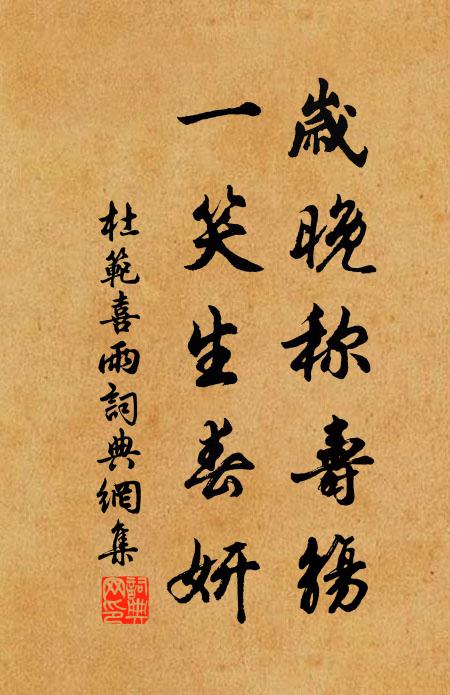 歲晚称壽觴
一笑生春妍
杜範喜雨詞典網集
詞典网印